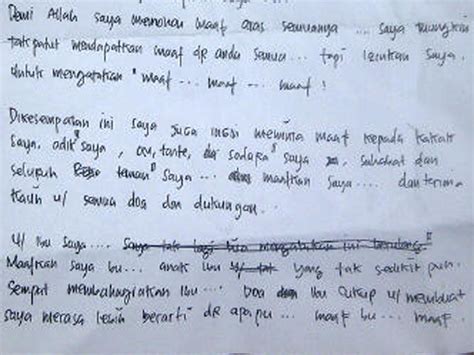 Demi Allah saya memohon maaf atas semuanya ... saya mungkin
tak patut mendapatkan maaf dr anda semua ... tapi izinkan saya
untuk mengatakan "maaf ... maaf ... maaf !
Dikesempatan ini saya juga ingin meminta maaf kepada kakak
saya, adik² saya, om, tante, sodara² saya, sahabat dan
seluruh teman² saya ... maafkan saya .... dan terima
kasih u/ semua doa dan dukungan.
u/ Ibu saya .... saya tak lagi bisa mengatakan ini
Maafkan saya bu ... anak ibu yang tak sedikit pun
sempat membahagiakan ibu ... Doa ibu cukup u/ membuat
saya merasa lebih berarti dr apapun ... maaf bu ... maaf.